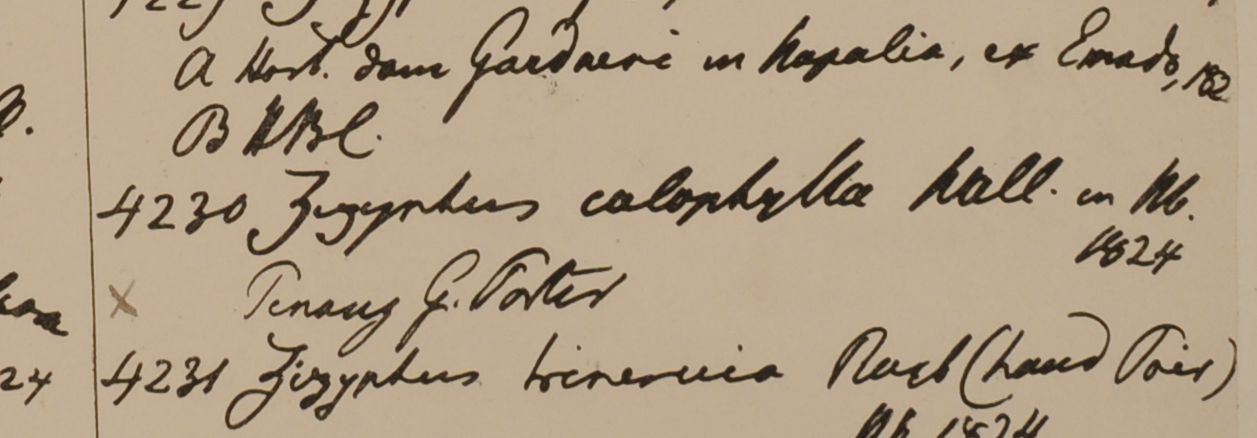 A Hort. dom Gardneri in Napalia, ex Emodo, 182
B HBC.
4230 Zizyphus calophylla Wall. in Hb.
1824
x Penang G. Porter
24 4231 Zizyphus trinervia Roxb (haud Poir)
Hb 1824